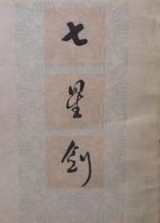 七星剑